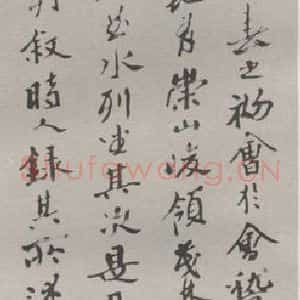 春之初會於會稽
地有崇山峻領茂林
曲水列坐其次是日
列叙時人錄其所述
Shufawang.CN